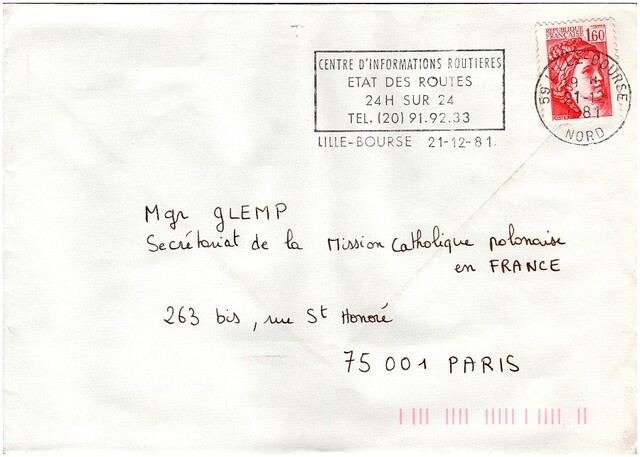 REPUBLIQUE
FRANÇAISE 1,60
CENTRE D'INFORMATIONS ROUTIERES
ETAT DES ROUTES
24H SUR 24
TEL. (20) 91.92.33
LILLE-BOURSE 21-12-81.
59 LILLE-BOURSE
19 H
21-12
1981
NORD
Mgr GLEMP
Secrétariat de la Mission Catholique polonaise
en FRANCE
263 bis, rue St Honoré
75 001 PARIS